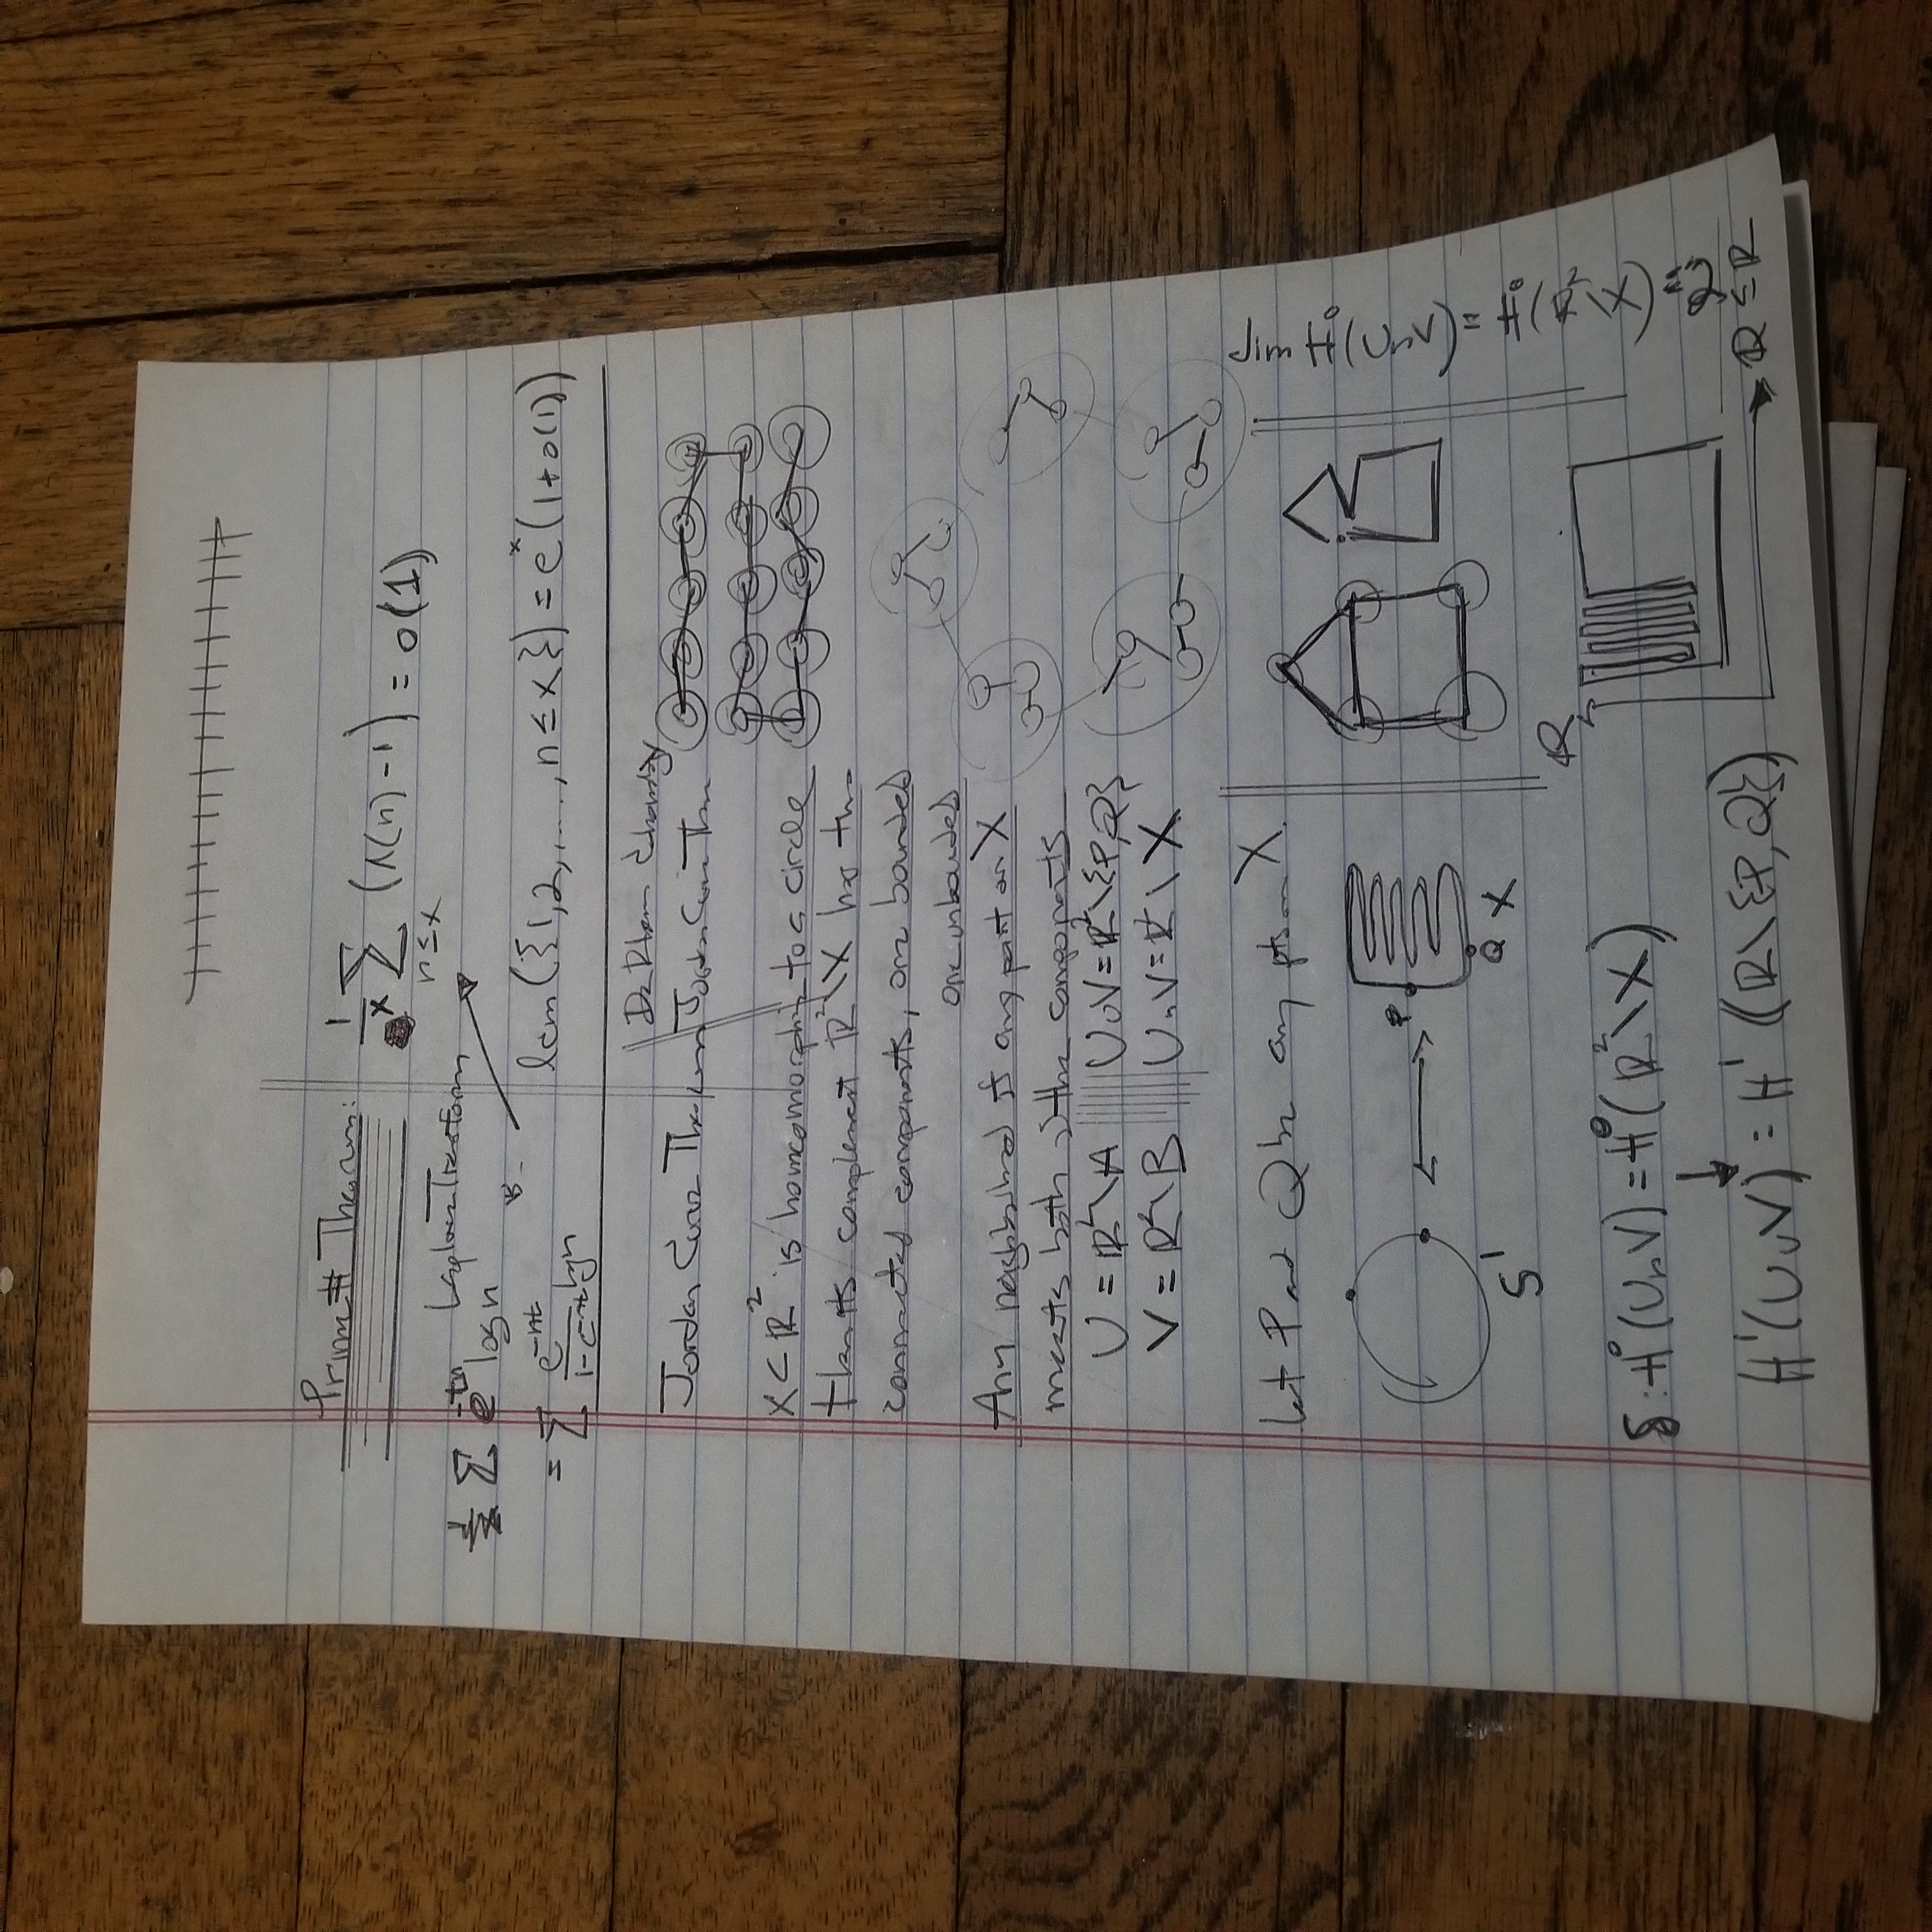 Prime # Theorem:
1/x Σ n≤x (Λ(n)-1) = o(1)
Laplace Transform
Σ e^-tn log n
= Σ e^-nt / 1-e^-nt log n
lcm({1,2,...., n≤x}) = e^x (1+o(1))
De Rham
Jordan Curve Theorem
Jordan Curve Thm
X ⊂ ℝ² is homeomorphic to a circle
then its complement ℝ²\X has two
connected components, one bounded
one unbounded
Any neighborhood of any point on X
meets both of the components
U = ℝ²\A
U∪V = ℝ²\{P,Q}
V = ℝ²\B
U∩V = ℝ²\X
Let P and Q be any pts on X.
P
Q X
S¹
δ: H⁰(U∩V) = H⁰(ℝ²\X)
↓
H¹(U∪V) = H¹((ℝ\{P,Q})
ℝ
ℝ
dim H⁰(U∩V) = H⁰(ℝ²\X)